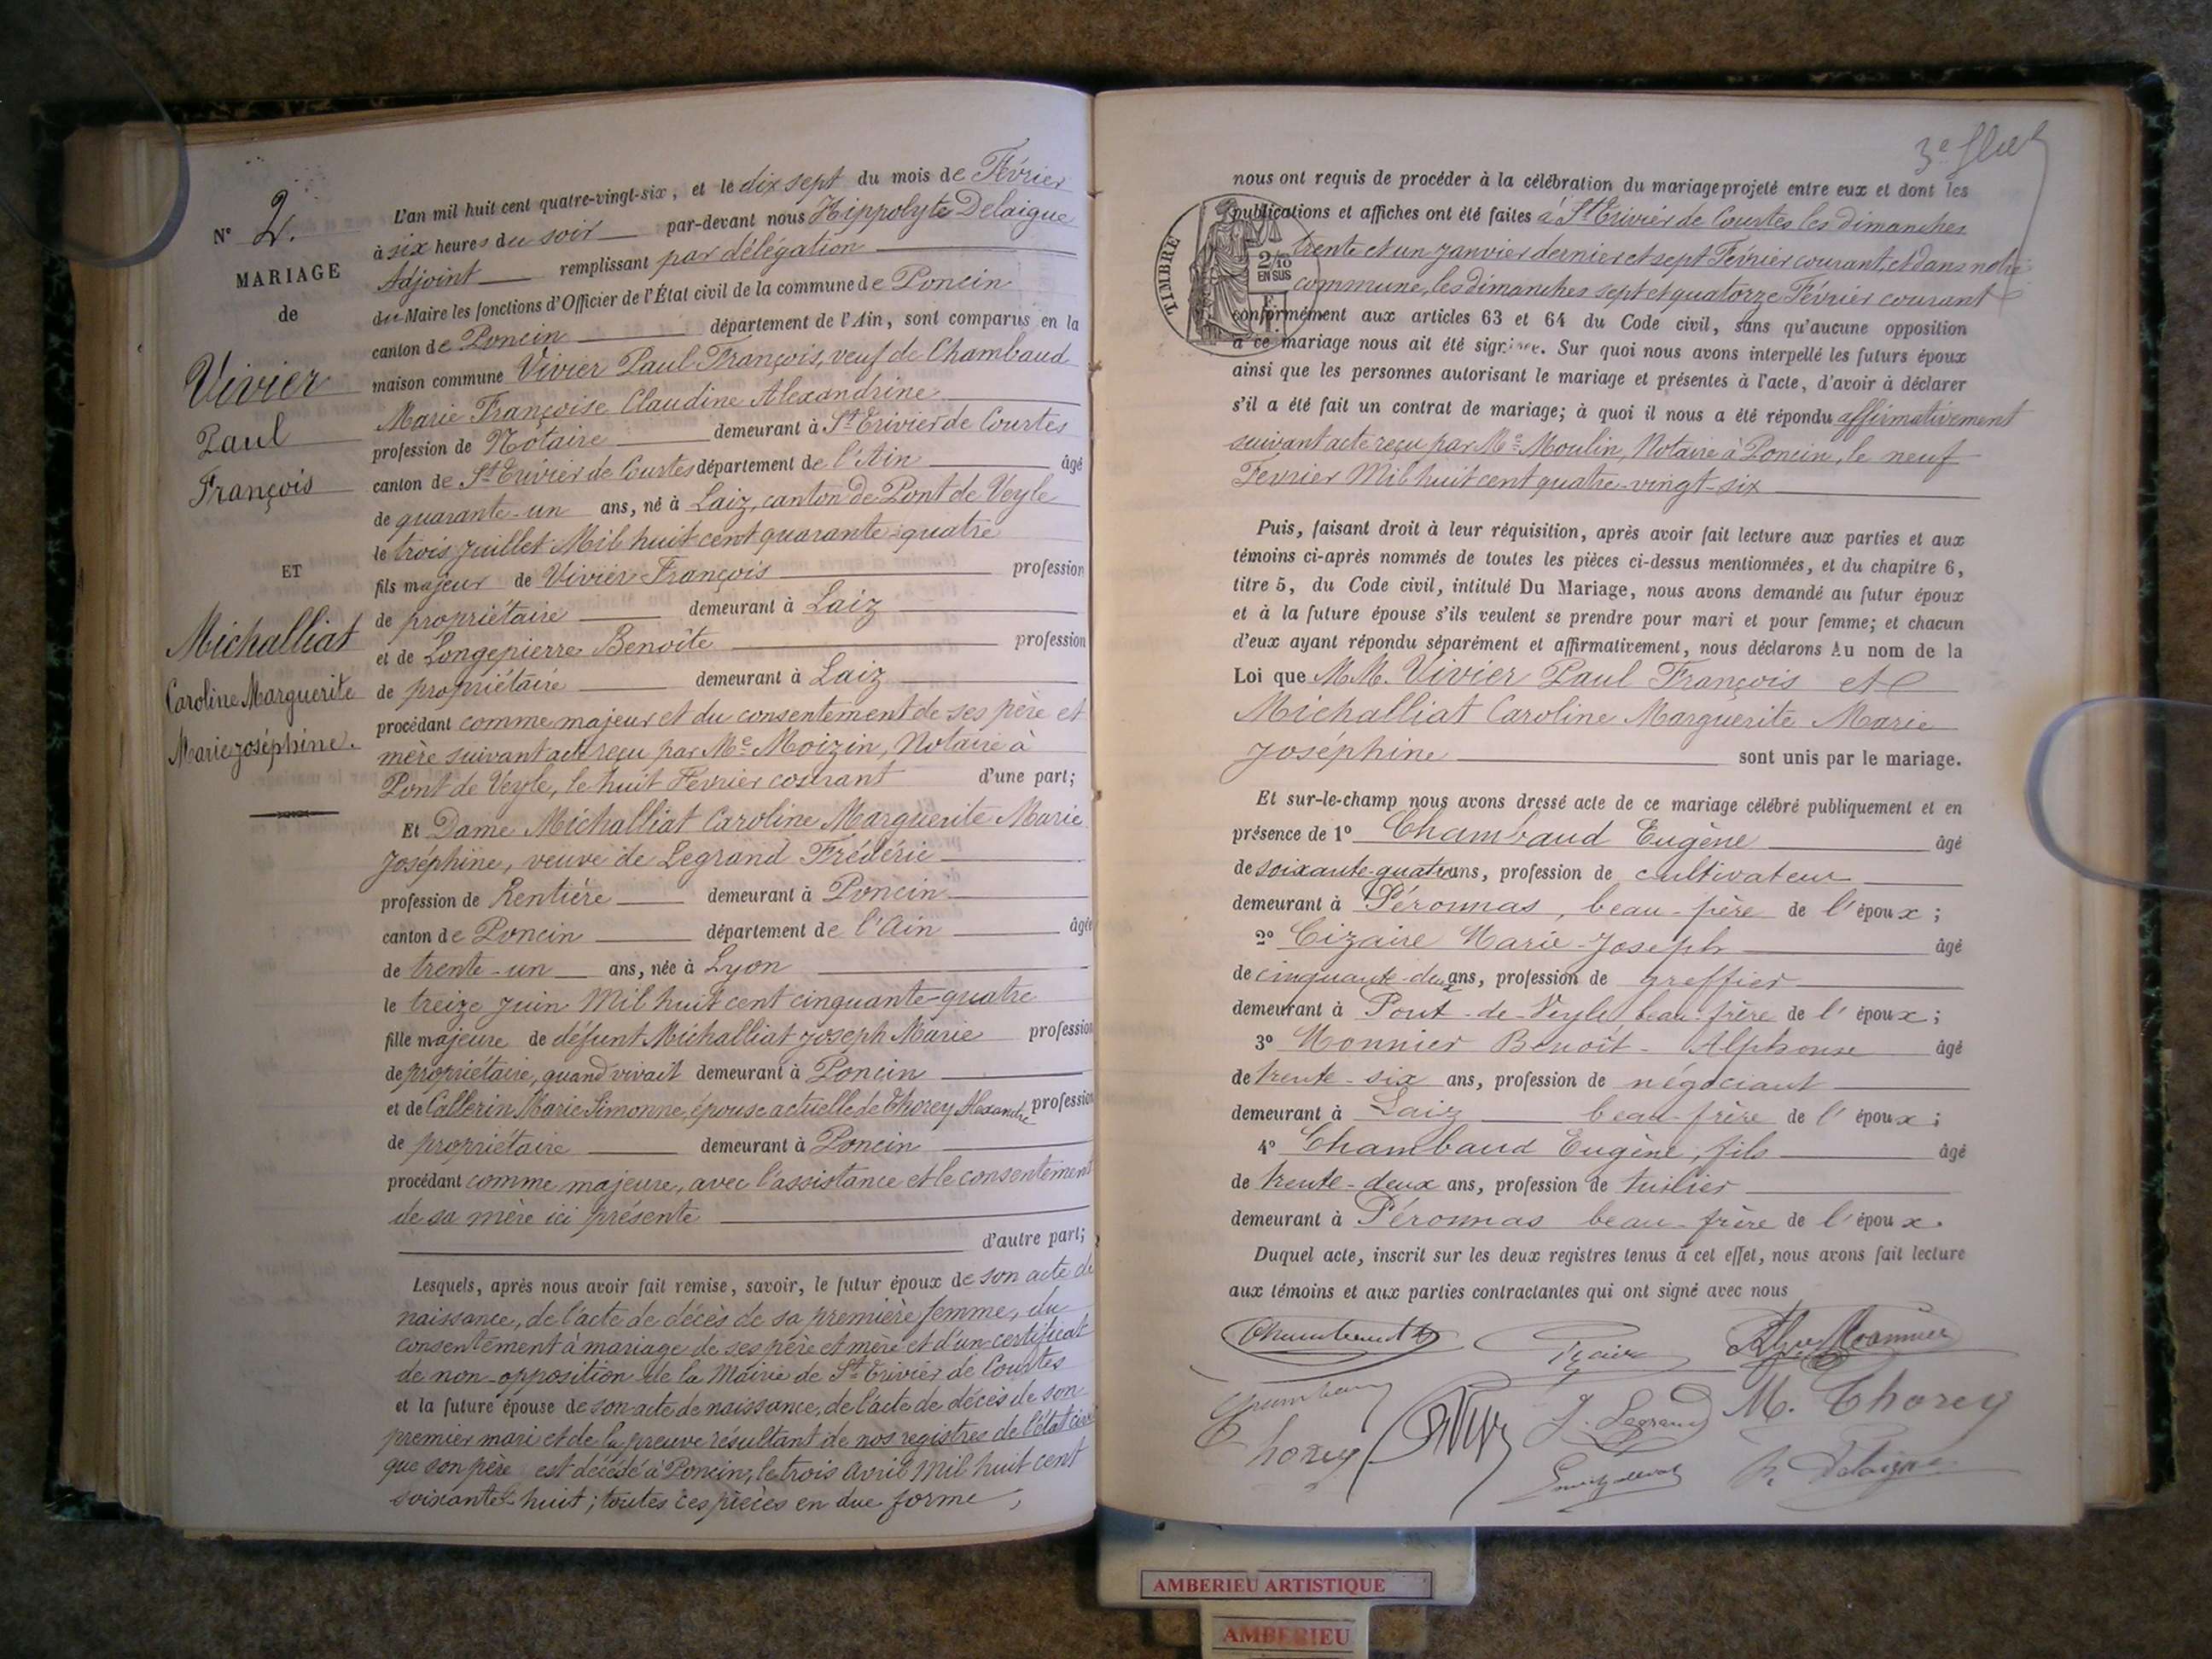 N° 2.
MARIAGE
de
Vivier
Paul
François
ET
Michalliat
Caroline Marguerite
Marie Joséphine.
L'an mil huit cent quatre-vingt-six, et le dix sept du mois de Février
à six heures du soir par-devant nous Hippolyte Delaigue
Adjoint remplissant par délégation
du Maire les fonctions d'Officier de l'État civil de la commune de Poncin
canton de Poncin département de l'Ain, sont comparus en la
maison commune Vivier Paul-François, veuf de Chambaud
Marie Françoise Claudine Alexandrine
profession de Notaire demeurant à St Trivier de Courtes
canton de St Trivier de Courtes département de l'Ain âgé
de quarante-un ans, né à Laiz, canton de Pont de Veyle
le trois Juillet Mil huit cent quarante-quatre
fils majeur de Vivier François profession
de propriétaire demeurant à Laiz
et de Longepierre Benoîte profession
de propriétaire demeurant à Laiz
procédant comme majeur et du consentement de ses père et
mère suivant acte reçu par Me Moizin, Notaire à
Pont de Veyle, le huit Février courant d'une part;
Et Dame Michalliat Caroline Marguerite Marie
Joséphine, veuve de Legrand Frédéric
profession de Rentière demeurant à Poncin
canton de Poncin département de l'Ain âgée
de trente-un ans, née à Lyon
le treize Juin Mil huit cent cinquante-quatre
fille majeure de défunt Michalliat Joseph Marie profession
de propriétaire, quand vivait demeurant à Poncin
et de Callerin Marie Simonne, épouse actuelle de Thorey Alexandre profession
de propriétaire demeurant à Poncin
procédant comme majeure, avec l'assistance et le consentement
de sa mère ici présente
d'autre part;
Lesquels, après nous avoir fait remise, savoir, le futur époux de son acte de
naissance, de l'acte de décès de sa première femme, du
consentement à mariage de ses père et mère et d'un certificat
de non-opposition de la Mairie de St Trivier de Courtes
et la future épouse de son acte de naissance, de l'acte de décès de son
premier mari et de la preuve résultant de nos registres de l'état civil
que son père est décédé à Poncin, le trois Avril Mil huit cent
soixante-huit; toutes ces pièces en due forme,
3e
TIMBRE
2/10
EN SUS
nous ont requis de procéder à la célébration du mariage projeté entre eux et dont les
publications et affiches ont été faites à St Trivier de Courtes les dimanches
trente et un Janvier dernier et sept Février courant, et dans notre
commune, les dimanches sept et quatorze Février courant
conformément aux articles 63 et 64 du Code civil, sans qu'aucune opposition
à ce mariage nous ait été signifiée. Sur quoi nous avons interpellé les futurs époux
ainsi que les personnes autorisant le mariage et présentes à l'acte, d'avoir à déclarer
s'il a été fait un contrat de mariage; à quoi il nous a été répondu affirmativement
suivant acte reçu par Me Moulin, Notaire à Poncin, le neuf
Février Mil huit cent quatre-vingt-six
Puis, faisant droit à leur réquisition, après avoir fait lecture aux parties et aux
témoins ci-après nommés de toutes les pièces ci-dessus mentionnées, et du chapitre 6,
titre 5, du Code civil, intitulé Du Mariage, nous avons demandé au futur époux
et à la future épouse s'ils veulent se prendre pour mari et pour femme; et chacun
d'eux ayant répondu séparément et affirmativement, nous déclarons Au nom de la
Loi que M.M. Vivier Paul François et
Michalliat Caroline Marguerite Marie
Joséphine sont unis par le mariage.
Et sur-le-champ nous avons dressé acte de ce mariage célébré publiquement et en
présence de 1° Chambaud Eugène âgé
de soixante-quatre ans, profession de cultivateur
demeurant à Péronnas, beau-père de l'époux;
2° Cizaire Marie-Joseph âgé
de cinquante-deux ans, profession de greffier
demeurant à Pont-de-Veyle beau-frère de l'époux;
3° Monnier Benoit-Alphonse âgé
de trente-six ans, profession de négociant
demeurant à Laiz beau-frère de l'époux;
4° Chambaud Eugène, fils âgé
de trente-deux ans, profession de tuilier
demeurant à Péronnas beau-frère de l'époux.
Duquel acte, inscrit sur les deux registres tenus à cet effet, nous avons fait lecture
aux témoins et aux parties contractantes qui ont signé avec nous
Monnier
J. Legrand M. Thorey
Thorey
Delaigue
AMBERIEU ARTISTIQUE
AMBERIEU